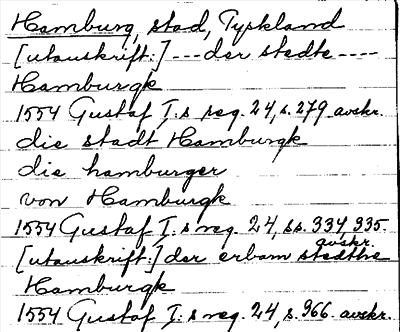 Hamburg, stad, Tyskland
[utanskrift:] --- der stedte ----
Hamburgk
1554 Gustaf I:s reg. 24, s. 279 avskr.
die stadt Hamburgk
die hamburger
von Hamburgk
1554 Gustaf I:s reg. 24, ss. 334, 335.
avskr.
[utanskrift:] der erbarn stedthe
Hamburgk
1554 Gustaf I:s reg. 24, s. 366. avskr.